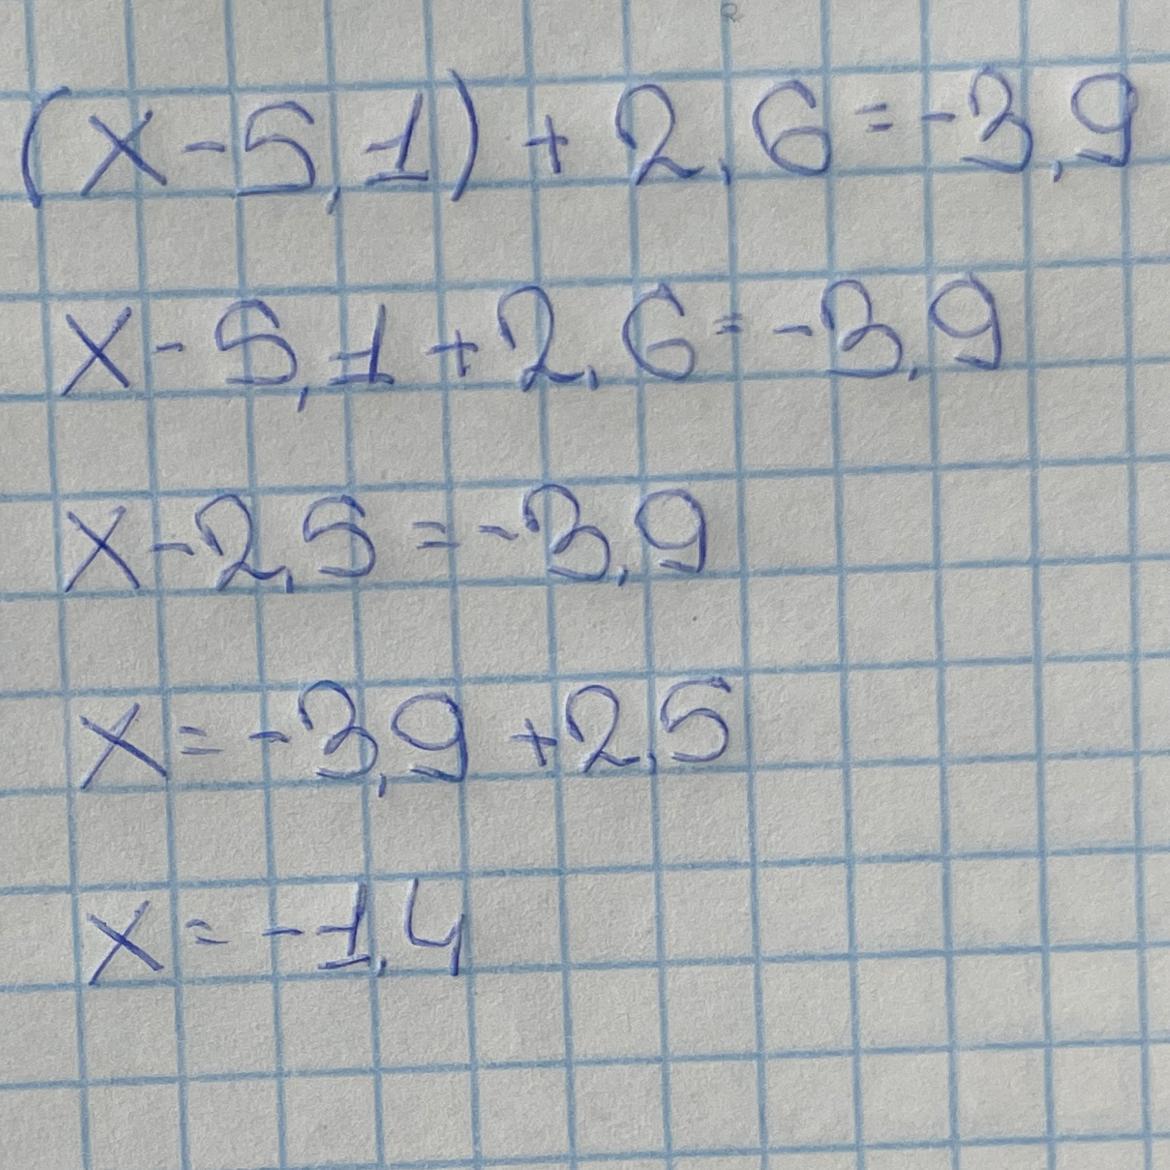 (x-5,1)+2,6=-3,9
x-5,1+2,6=-3,9
x-2,5=-3,9
x=-3,9+2,5
x=-1,4